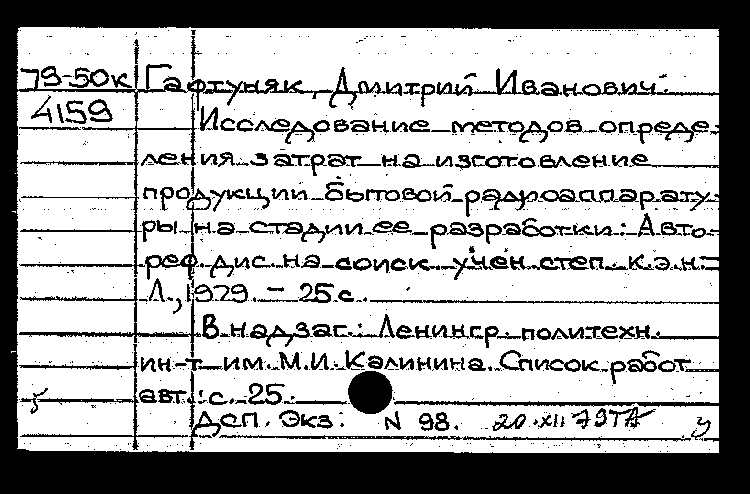 79-50к Гафтуняк, Дмитрий Иванович.
4159 Исследование методов опреде-
ления затрат на изготовление
продукции бытовой радиоаппарату-
ры на стадии ее разработки: Авто-
реф. дис. на соиск. учен. степ. к.э.н.-
Л., 1979. - 25 с.
В надзаг.: Ленингр. политехн.
ин-т им. М.И. Калинина. Список работ
авт.: с. 25.
ДСП. Экз. N 98. 20.XII 79